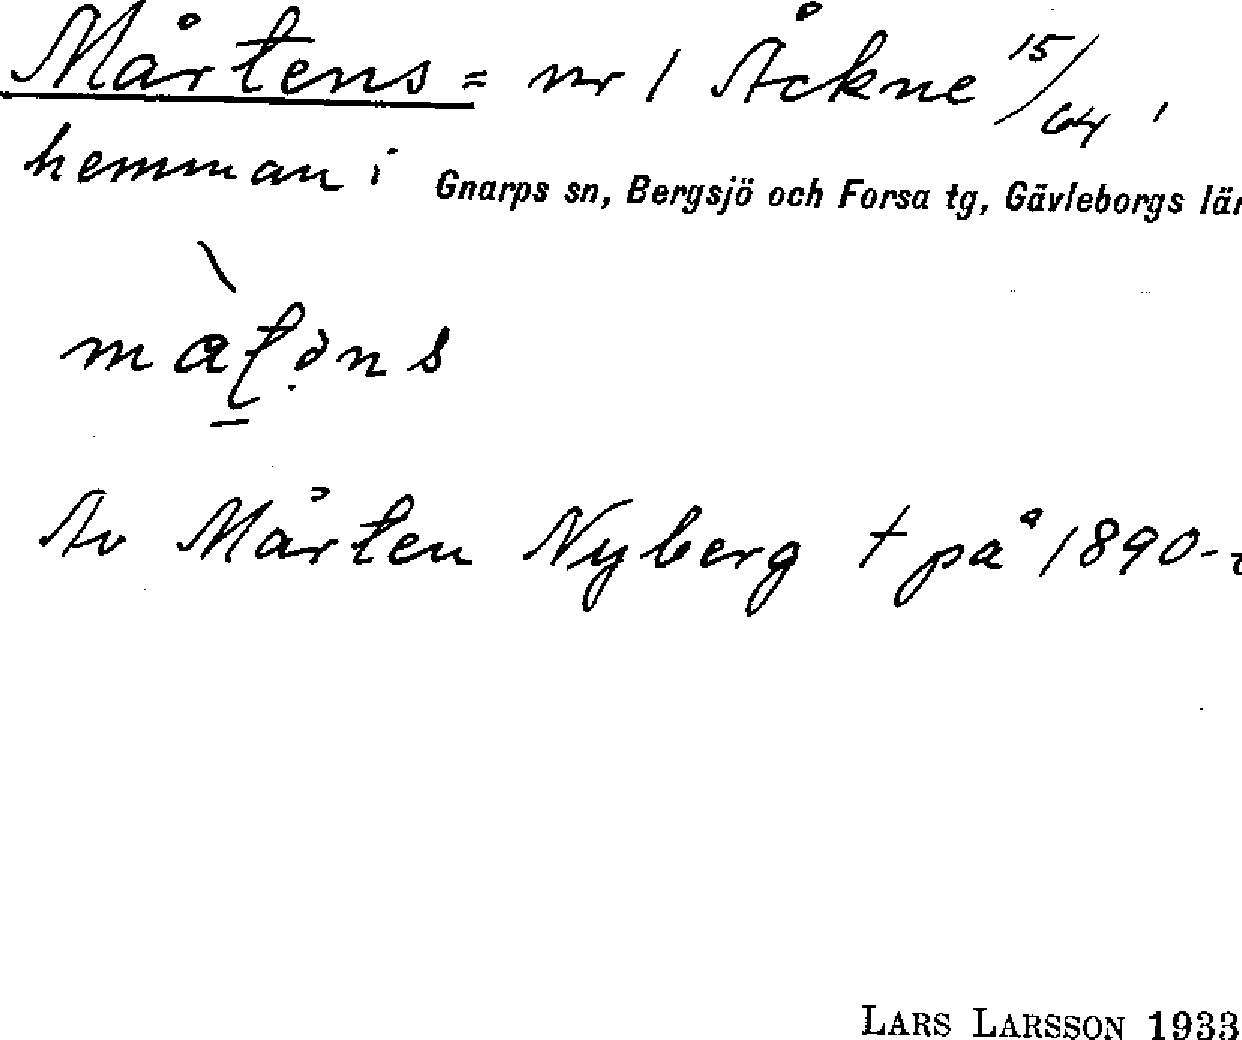 Mårtens = nr 1 Åckne 15/64,
hemman i Gnarps sn, Bergsjö och Forsa tg, Gävleborgs län
Av Mårten Nyberg † på 1890-
LARS LARSSON 1933